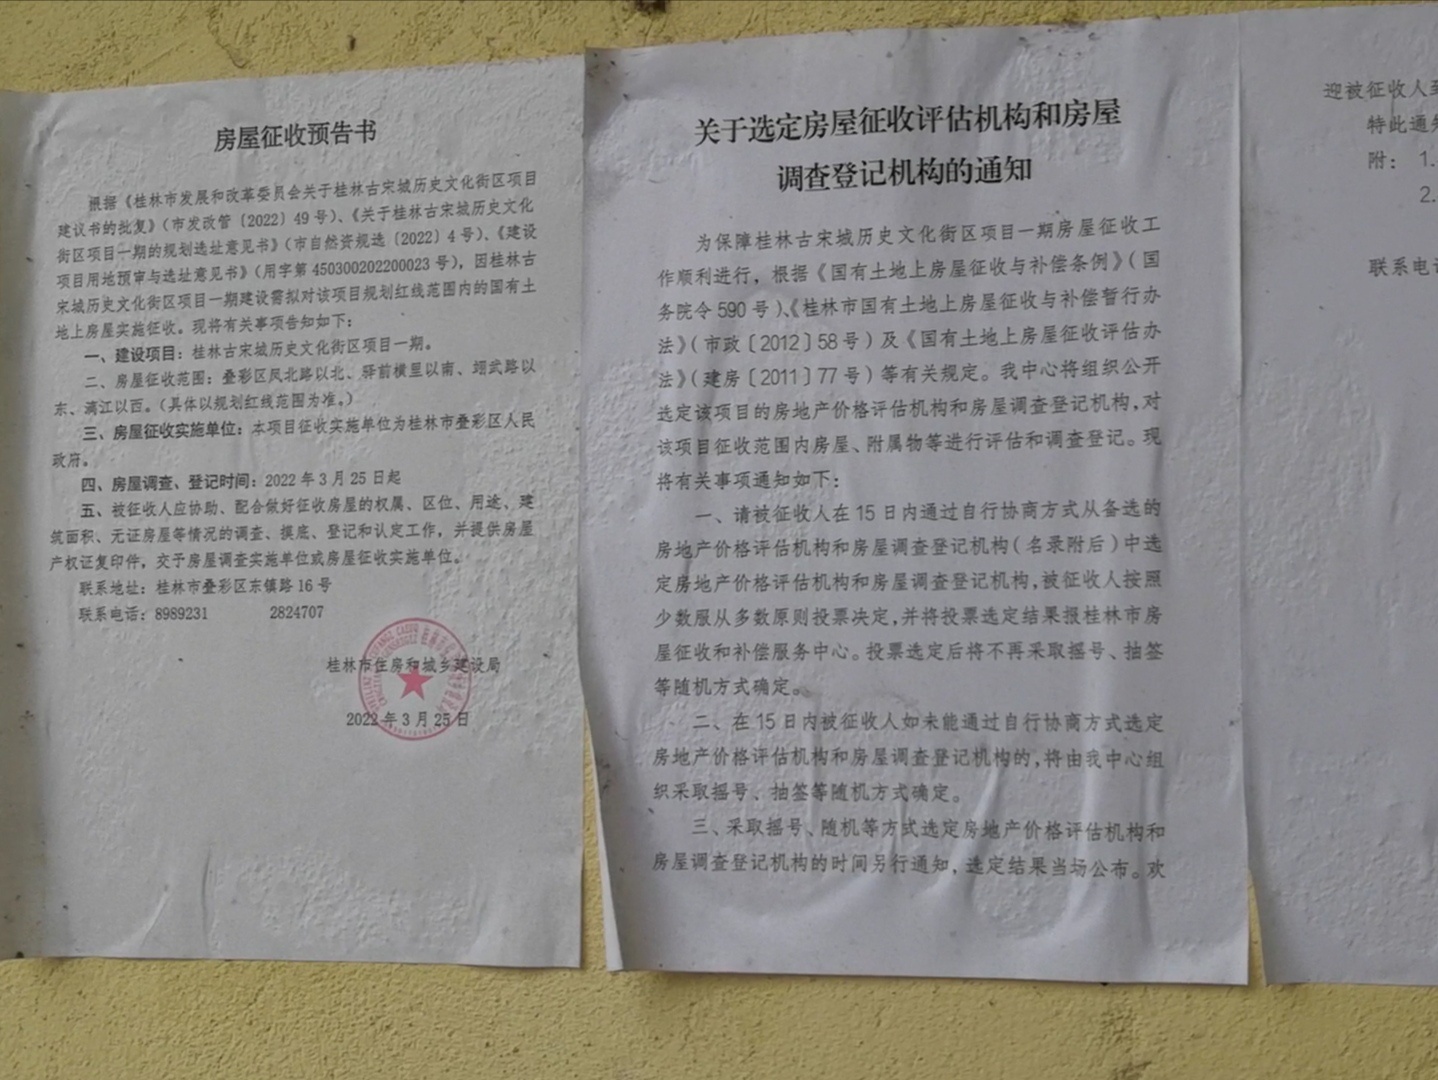 房屋征收预告书
根据《桂林市发展和改革委员会关于桂林古宋城历史文化街区项目
建议书的批复》（市发改管〔2022〕49号）、《关于桂林古宋城历史文化
街区项目一期的规划选址意见书》（市自然资规选〔2022〕4号）、《建设
项目用地预审与选址意见书》（用字第450300202200023号），因桂林古
宋城历史文化街区项目一期建设需拟对该项目规划红线范围内的国有土
地上房屋实施征收。现将有关事项告知如下：
一、建设项目：桂林古宋城历史文化街区项目一期。
二、房屋征收范围：叠彩区凤北路以北、驿前横里以南、翊武路以
东、漓江以西。（具体以规划红线范围为准。）
三、房屋征收实施单位：本项目征收实施单位为桂林市叠彩区人民
政府。
四、房屋调查、登记时间：2022年3月25日起
五、被征收人应协助、配合做好征收房屋的权属、区位、用途、建
筑面积、无证房屋等情况的调查、摸底、登记和认定工作，并提供房屋
产权证复印件，交于房屋调查实施单位或房屋征收实施单位。
联系地址：桂林市叠彩区东镇路16号
联系电话：8989231 2824707
桂林市住房和城乡建设局
2022年3月25日
关于选定房屋征收评估机构和房屋
调查登记机构的通知
为保障桂林古宋城历史文化街区项目一期房屋征收工
作顺利进行，根据《国有土地上房屋征收与补偿条例》（国
务院令590号）、《桂林市国有土地上房屋征收与补偿暂行办
法》（市政〔2012〕58号）及《国有土地上房屋征收评估办
法》（建房〔2011〕77号）等有关规定。我中心将组织公开
选定该项目的房地产价格评估机构和房屋调查登记机构，对
该项目征收范围内房屋、附属物等进行评估和调查登记。现
将有关事项通知如下：
一、请被征收人在15日内通过自行协商方式从备选的
房地产价格评估机构和房屋调查登记机构（名录附后）中选
定房地产价格评估机构和房屋调查登记机构，被征收人按照
少数服从多数原则投票决定，并将投票选定结果报桂林市房
屋征收和补偿服务中心。投票选定后将不再采取摇号、抽签
等随机方式确定。
二、在15日内被征收人如未能通过自行协商方式选定
房地产价格评估机构和房屋调查登记机构的，将由我中心组
织采取摇号、抽签等随机方式确定。
三、采取摇号、随机等方式选定房地产价格评估机构和
房屋调查登记机构的时间另行通知，选定结果当场公布。欢
迎被征收人
特此通
附： 1.
2.
联系电